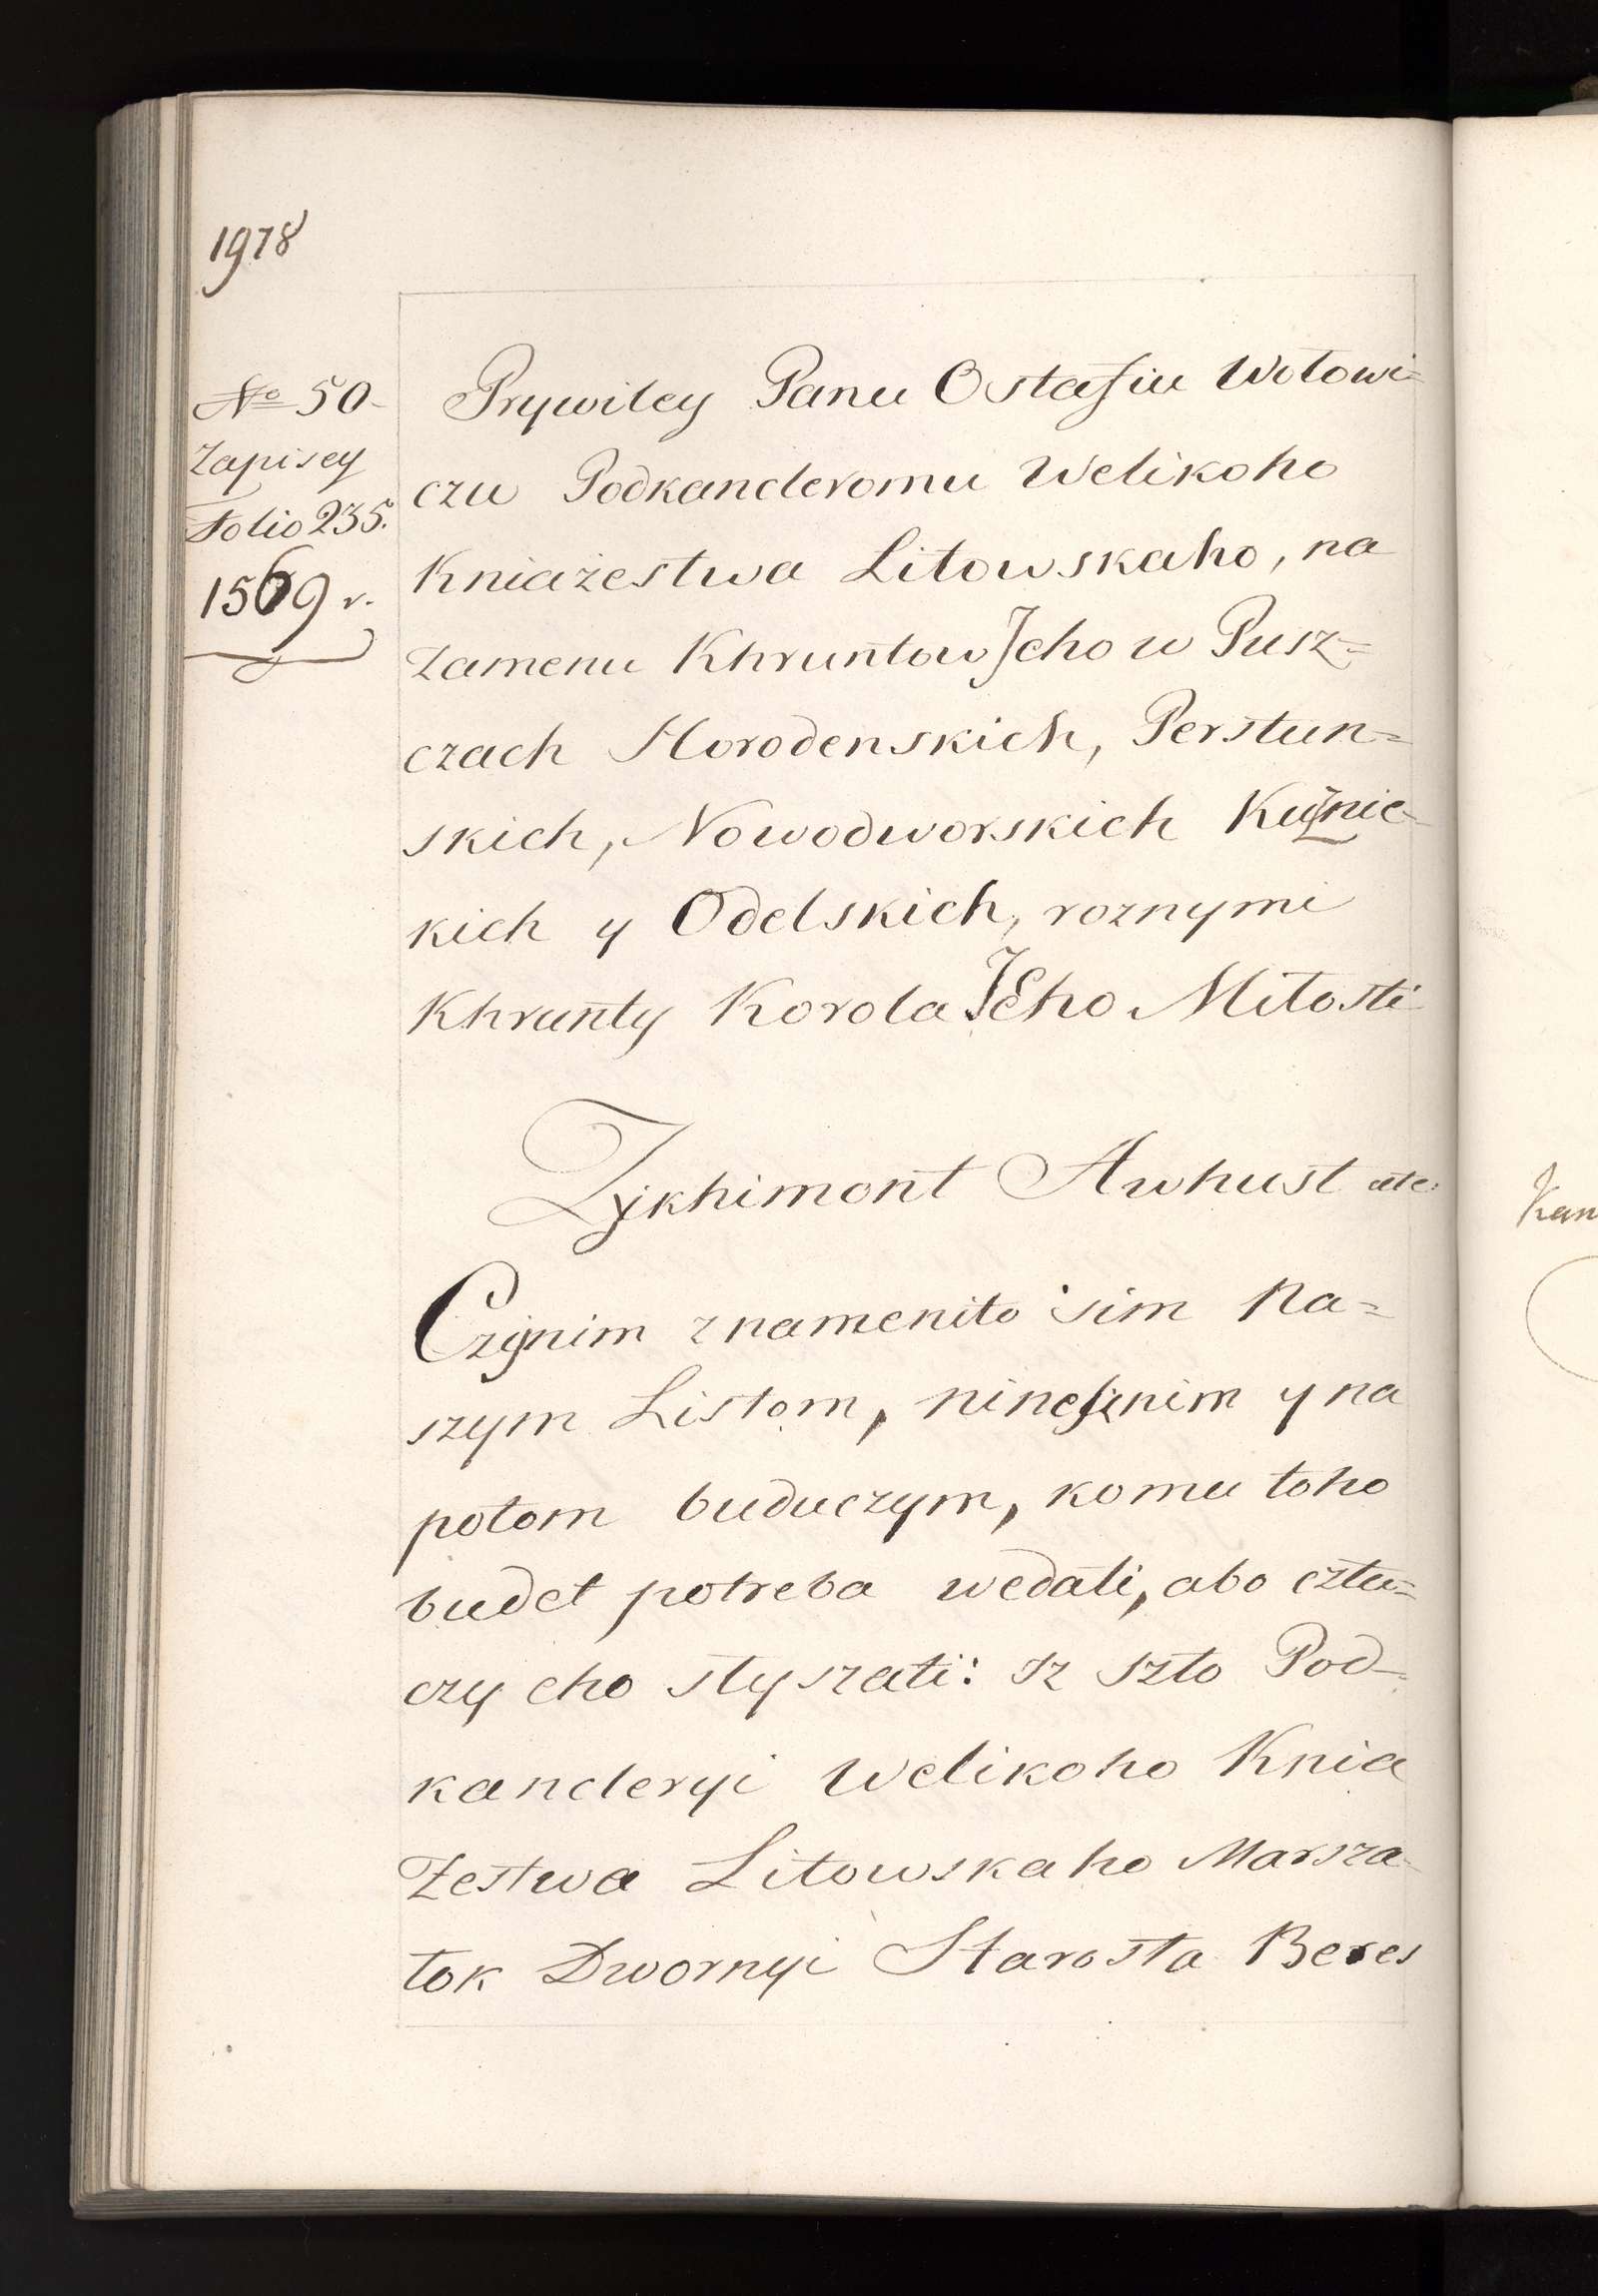 1978
№ 50
Zapisey
Folio 235.
1569 r.
Prywiley Panu Ostafiu Wołowi=
czu Podkancleromu Welikoho
Kniażestwa Litowskaho, na
zamenu Khruntow Jeho w Pusz=
czach Horodenskich, Perstun=
skich, Nowodworskich Kuźnic=
kich y Odelskich, roznymi
Khrunty Korola JEho Miłosti
Zykhimont Awhust etc:
Czynim znamenito sim Na=
szym Listom, nineśznim y na
potom buduczym, komu toho
budet potreba wedati, abo cztu=
czy eho słyszati: Iż szto Pod=
kancleryi Welikoho Knia
żestwa Litowskaho Marsza
łok Dwornyi Starosta Beres
Kan